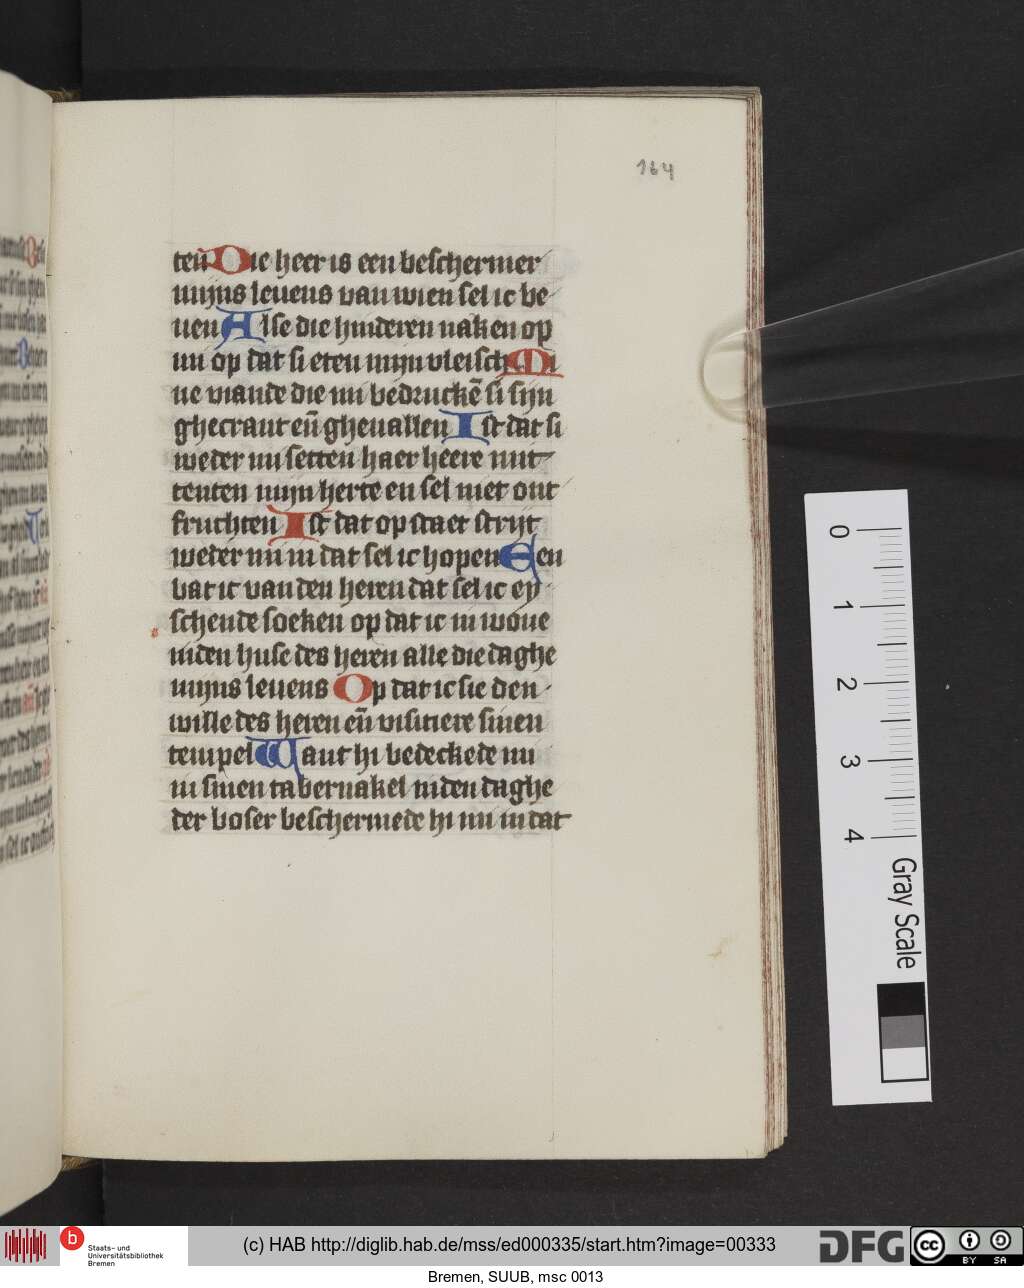 164
teñ Die heer is een beschermer
mijns leuens van wien sel ic be
uen Alse die hinderen naken op
mi op dat si eten mijn vleisch Mi
ne viande die mi bedruckē si sijn
ghecrant eñ gheuallen Ist dat si
weder mi setten haer heere mit
tenten mijn herte en sel niet ont
fruchten Ist dat op staet strijt
weder mi in dat sel ic hopen Een
bat ic van den heren dat sel ic ey
schende soeken op dat ic in wone
inden huse des heren alle die daghe
mijns leuens Op dat ic sie den
wille des heren eñ visitiere sinen
tempel Want hi bedeckede mi
in sinen tabernakel inden daghe
der boser beschermede hi mi in dat
0
1
2
3
4
Gray Scale
b
Staats- und
Universitätsbibliothek
Bremen
(c) HAB http://diglib.hab.de/mss/ed000335/start.htm?image=00333
DFG
cc
BY SA
Bremen, SUUB, msc 0013